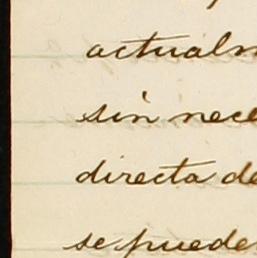 actualm
sin nece
directa de
se puede